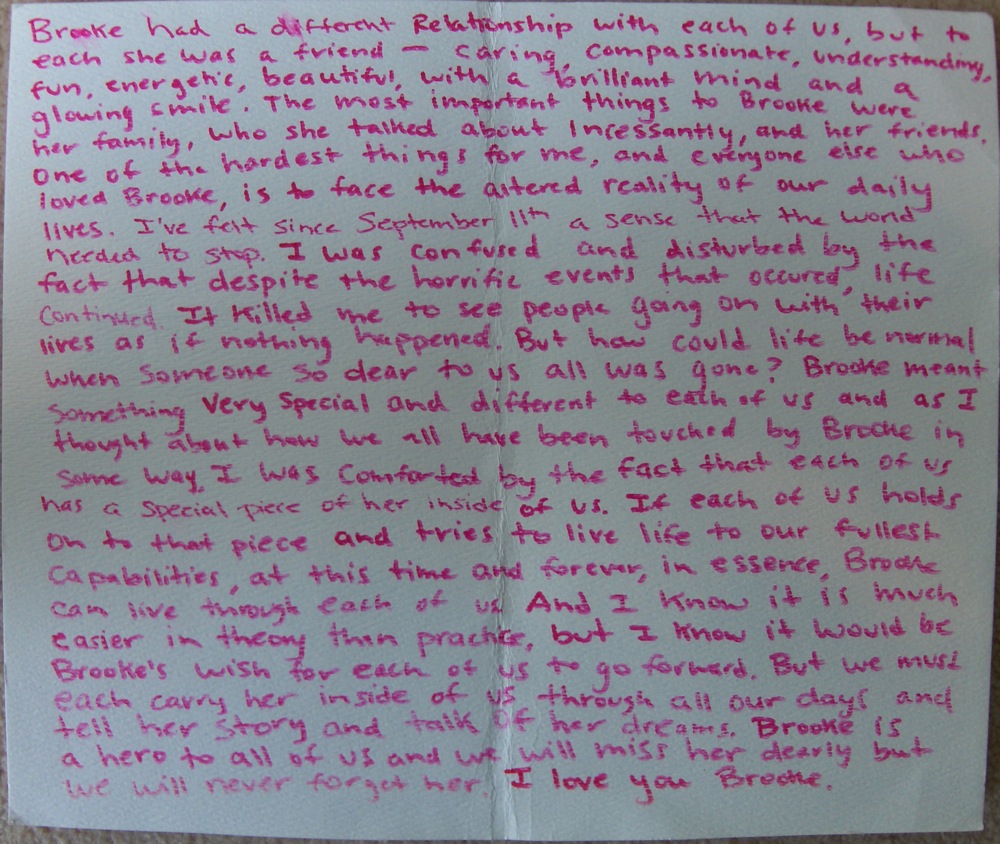 Brooke had a different Relationship with each of us, but to
each she was a friend — caring, compassionate, understanding,
fun, energetic, beautiful, with a brilliant mind and a
glowing smile. The most important things to Brooke were
her family, who she talked about incessantly, and her friends.
One of the hardest things for me, and everyone else who
loved Brooke, is to face the altered reality of our daily
lives. I've felt since September 11th a sense that the world
needed to stop. I was confused and disturbed by the
fact that despite the horrific events that occured, life
continued. It killed me to see people going on with their
lives as if nothing happened. But how could life be normal
when someone so dear to us all was gone? Brooke meant
something very special and different to each of us and as I
thought about how we all have been touched by Brooke in
some way, I was comforted by the fact that each of us
has a special piece of her inside of us. If each of us holds
on to that piece and tries to live life to our fullest
capabilities, at this time and forever, in essence, Brooke
can live through each of us. And I know it is much
easier in theory than practice, but I know it would be
Brooke's wish for each of us to go forward. But we must
each carry her inside of us through all our days and
tell her story and talk of her dreams. Brooke is
a hero to all of us and we will miss her dearly but
we will never forget her. I love you Brooke.